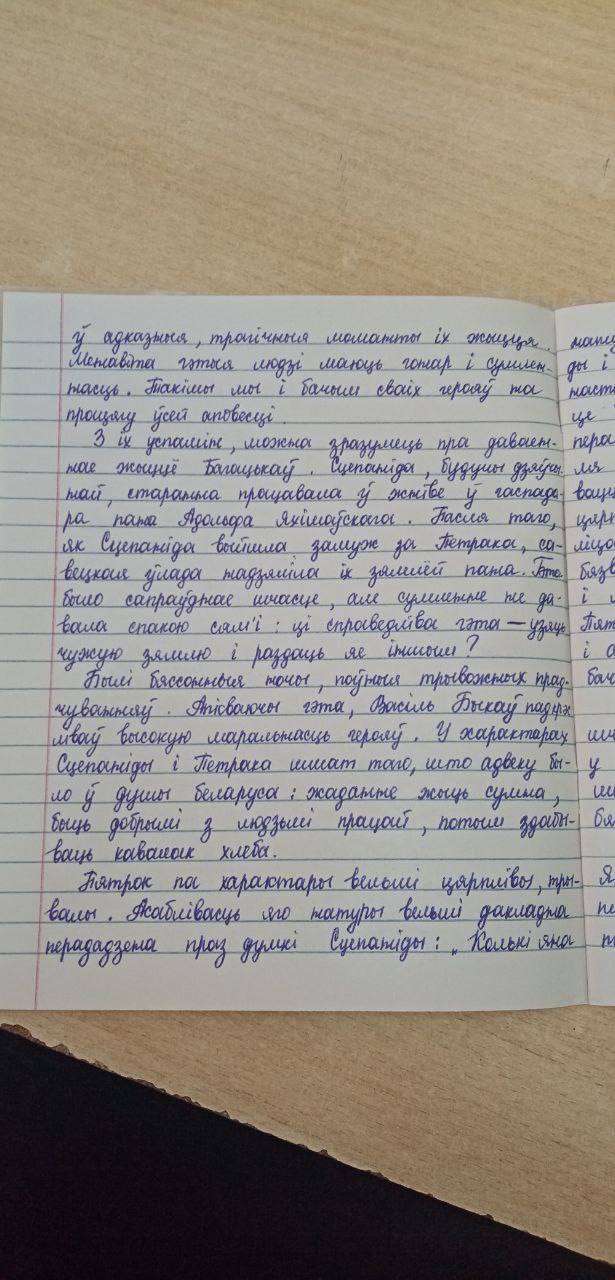 ў адказныя, трагічныя моманты іх жыцця.
Менавіта гэтыя людзі маюць гонар і сумлен-
насць. Такімі мы і бачым сваіх герояў на
працягу ўсей аповесці.
З іх успамін, можна зразумець пра даваен-
нае жыццё Багацькаў. Сцепаніда, будучы дзяўчы-
най, старанна працавала ў жніве ў гаспада-
ра пана Адольфа Яхімаўскага. Пасля таго,
як Сцепаніда выйшла замуж за Петрака, са-
вецкая ўлада надзяліла іх зямлёй пана. Гэта
было сапраўднае шчасце, але сумленне не да-
вала спакою сям'і: ці справедліва гэта — узяць
чужую зямлю і раздаць яе іншым?
Былі бяссонныя ночы, поўныя трывожных прад-
чуванняў. Апісваючы гэта, Васіль Быкаў падкрэс
ліваў высокую маральнасць герояў. У характарах
Сцепаніды і Петрака шмат таго, што адвеку бы-
ло ў душы беларуса: жаданне жыць сумна,
быць добрымі з людзьмі працай, потым здабы-
ваць кавалак хлеба.
Пятрок па характары вельмі цярплівы, тры-
валы. Асаблівасць яго натуры вельмі дакладна
перададзена праз думкі Сцепаніды: „Колькі яна